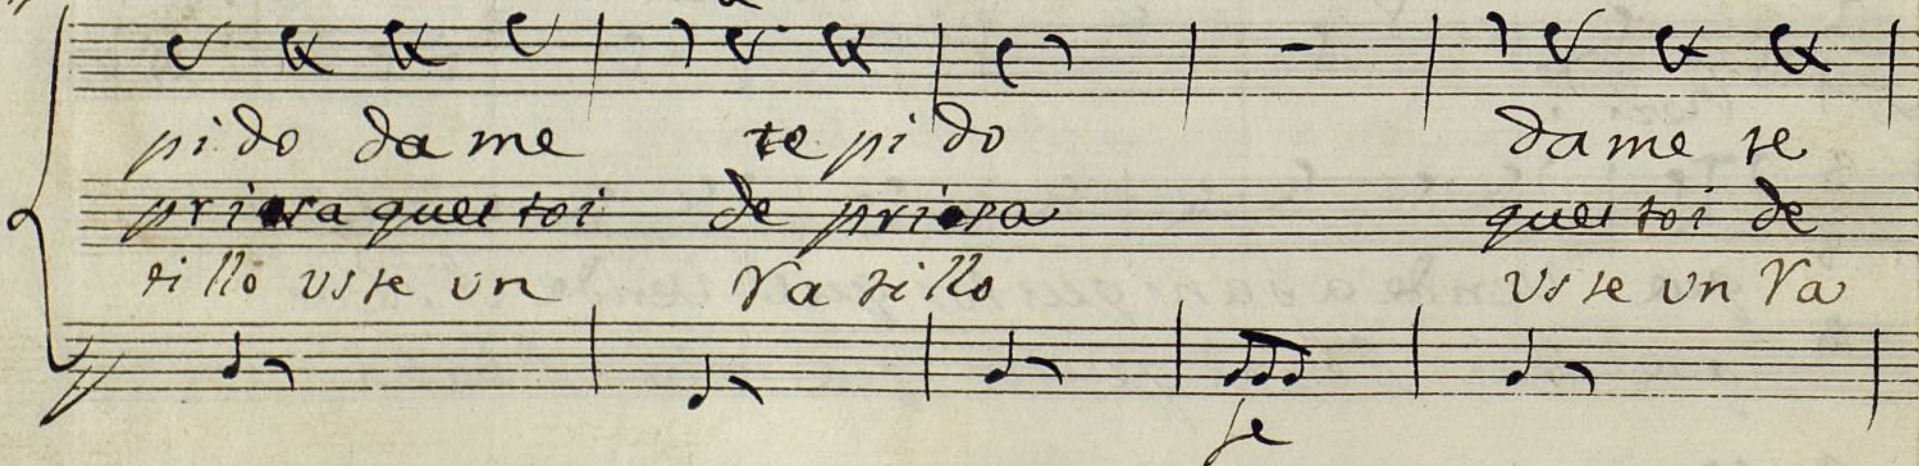 pi do da me te pi do da me te
priesa ques toi de priesa ques toi de
si llo vste vn Va si llo vste vn Va
fe